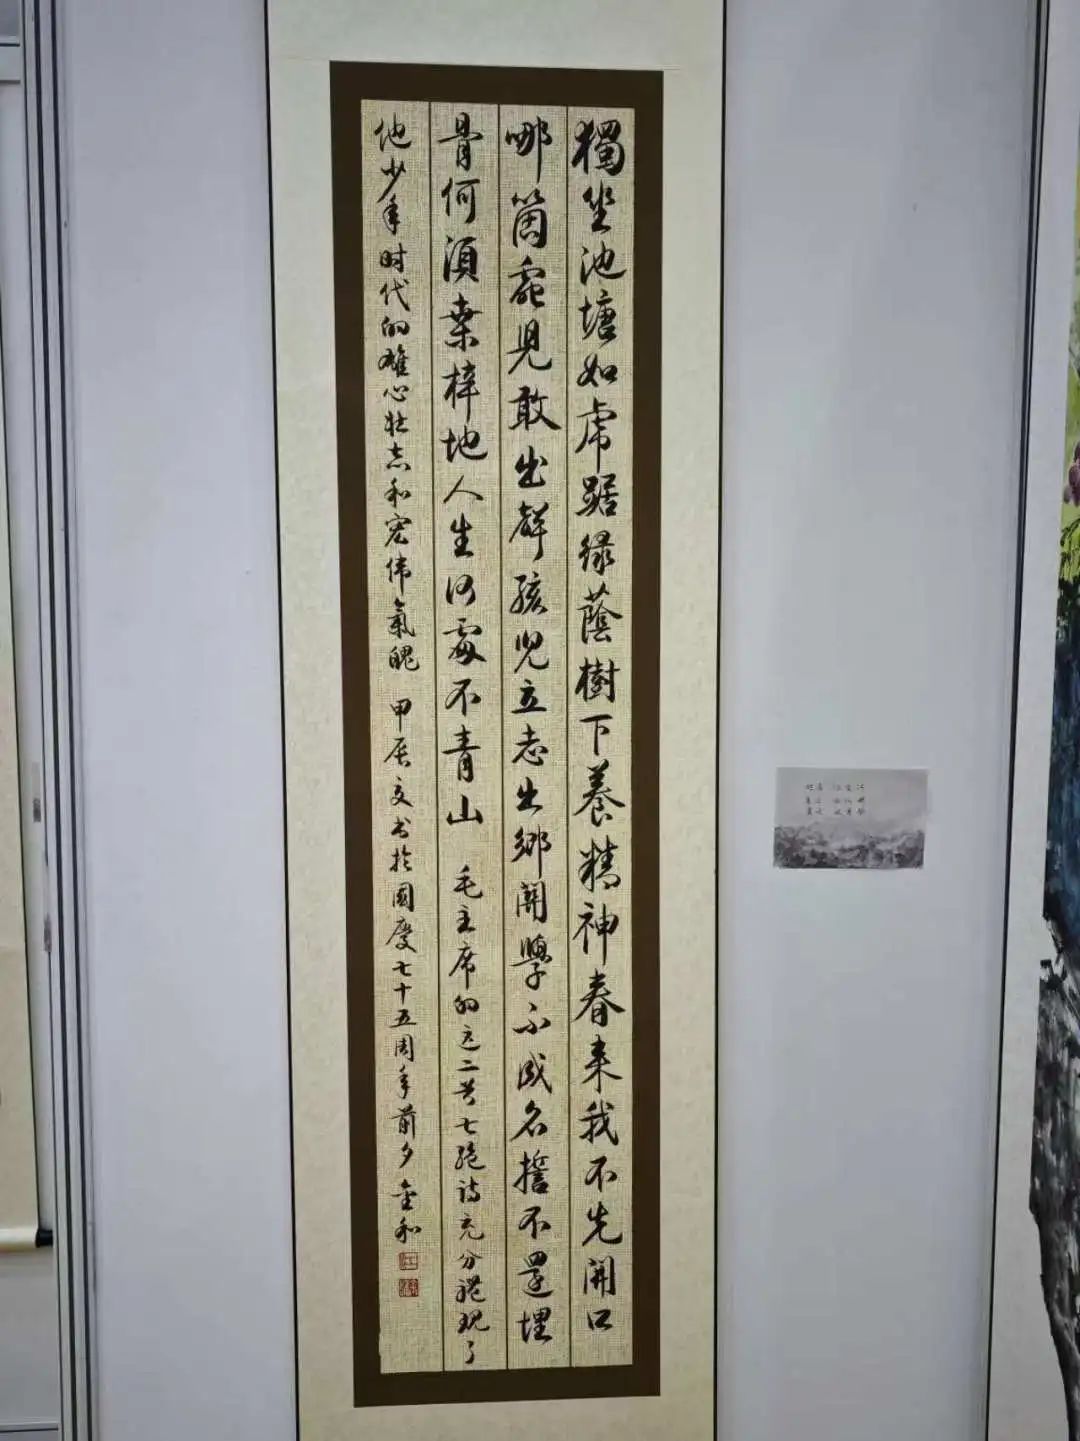 獨坐池塘如虎踞緑蔭樹下養精神春来我不先開口
哪箇蟲児敢出聲孩児立志出鄉關學不成名誓不還埋
骨何須桑梓地人生何處不青山 毛主席的这二首七绝诗充分體现了
他少年时代的雄心壮志和宏伟氣魄 甲辰夏书於國慶七十五周年前夕 金和